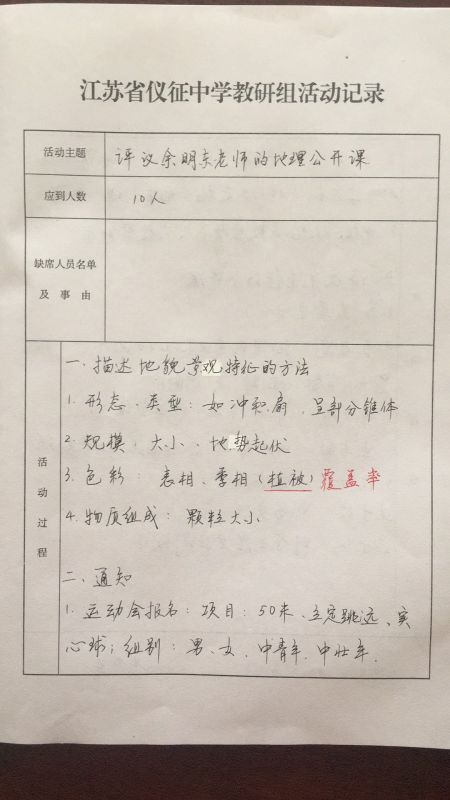 江苏省仪征中学教研组活动记录
活动主题 评议余明东老师的地理公开课
应到人数 10人
缺席人员名单
及事由
活动过程
一、描述地貌景观特征的方法
1. 形态、类型：如冲积扇，呈部分锥体
2. 规模、大小、地势起伏
3. 色彩：表相、季相（植被）覆盖率
4. 物质组成：颗粒大小
二、通知
1. 运动会报名：项目：50米、立定跳远、实
心球；组别：男、女，中青年，中壮年.